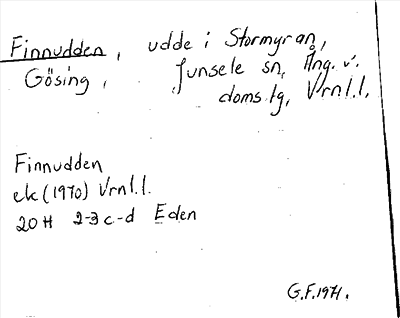 Finnudden, udde i Stormyran,
Gösing, Junsele sn, Ång. v.
doms.lg, Vrnl.l.
Finnudden
ek (1970) Vrnl.l.
20H 2-3 c-d Eden
G.F. 1971.